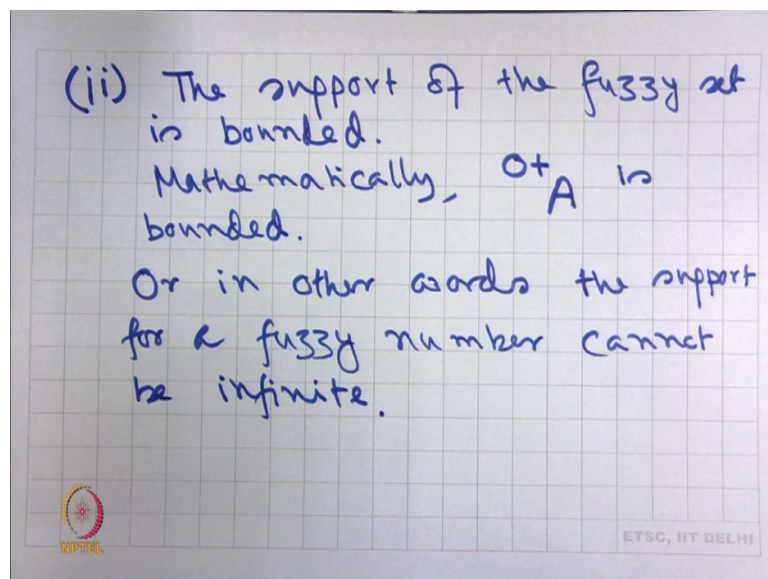 (ii) The support of the fuzzy set
is bounded.
Mathematically, 0+A is
bounded.
Or in other words the support
for a fuzzy number cannot
be infinite.
NPTEL
ETSC, IIT DELHI